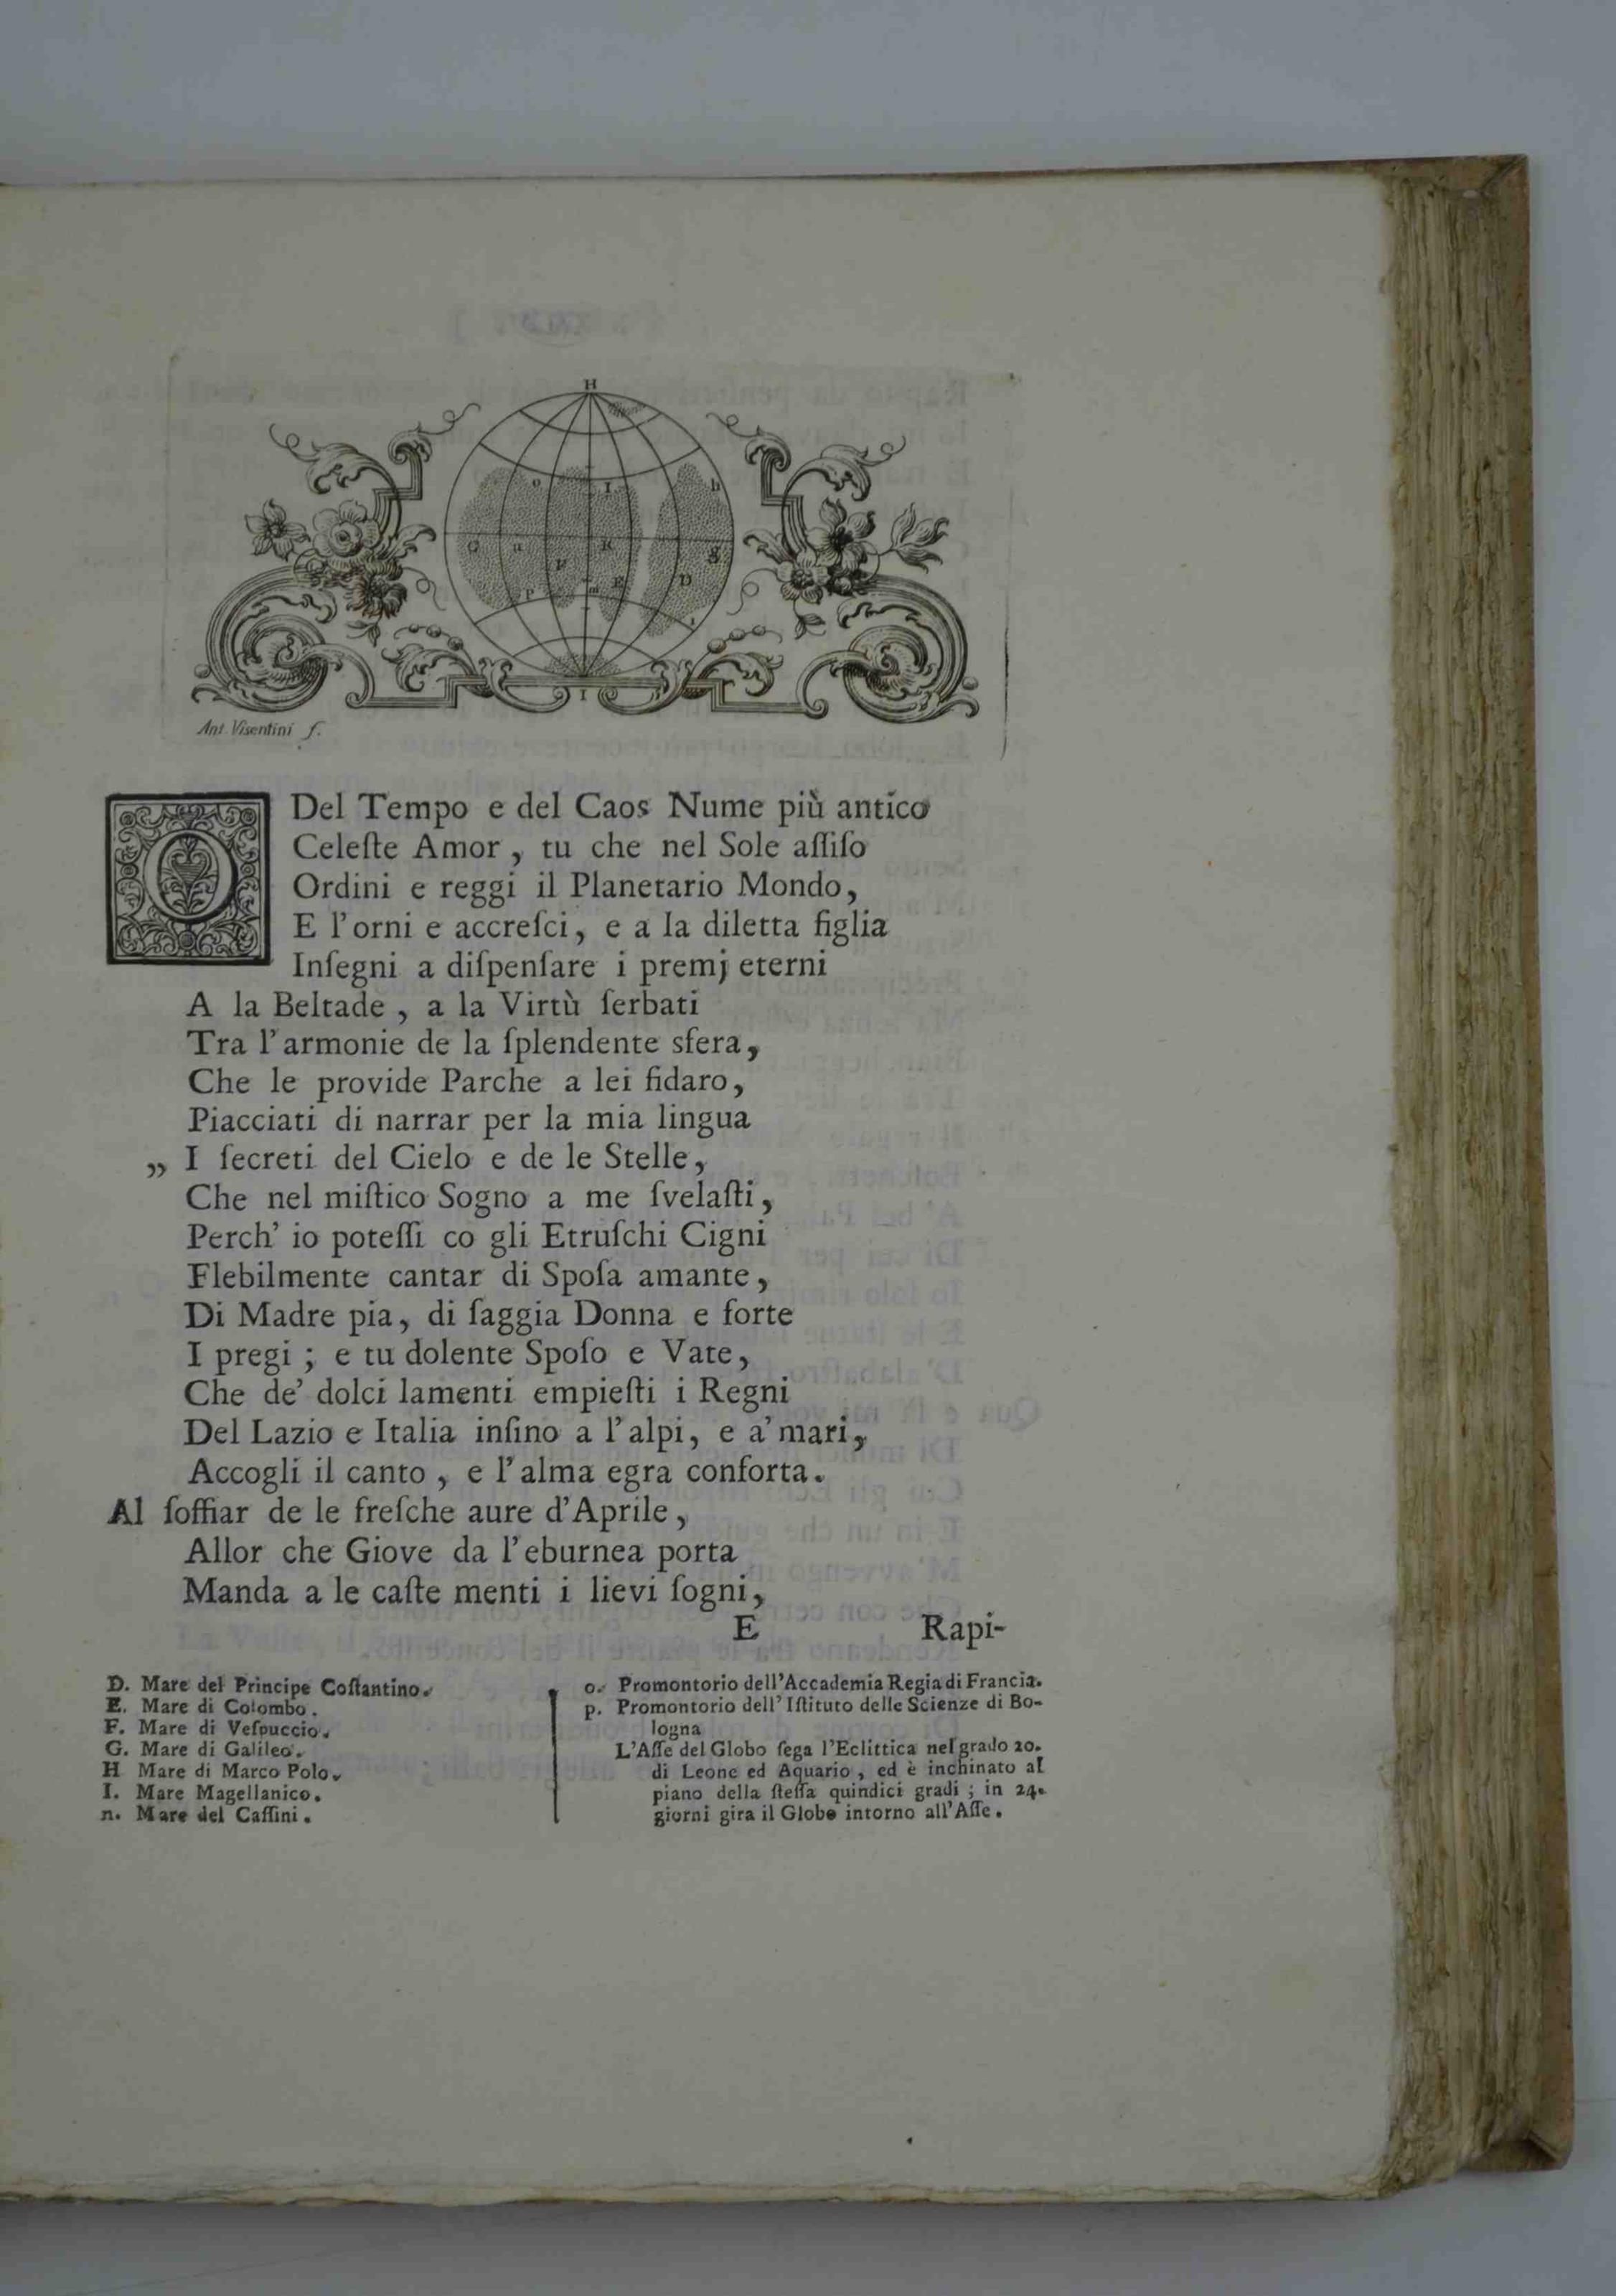 H
o I h
G n K g
F E D
p m i
I
Ant. Visentini f.
O Del Tempo e del Caos Nume più antico
Celeſte Amor, tu che nel Sole aſſiſo
Ordini e reggi il Planetario Mondo,
E l'orni e accreſci, e a la diletta figlia
Inſegni a diſpenſare i premj eterni
A la Beltade, a la Virtù ſerbati
Tra l'armonie de la ſplendente sfera,
Che le provide Parche a lei fidaro,
Piacciati di narrar per la mia lingua
„ I ſecreti del Cielo e de le Stelle,
Che nel miſtico Sogno a me ſvelaſti,
Perch' io poteſſi co gli Etruſchi Cigni
Flebilmente cantar di Spoſa amante,
Di Madre pia, di ſaggia Donna e forte
I pregi; e tu dolente Spoſo e Vate,
Che de' dolci lamenti empieſti i Regni
Del Lazio e Italia inſino a l'alpi, e a' mari,
Accogli il canto, e l'alma egra conforta.
Al ſoffiar de le freſche aure d'Aprile,
Allor che Giove da l'eburnea porta
Manda a le caſte menti i lievi ſogni,
E Rapi-
D. Mare del Principe Coſtantino.
E. Mare di Colombo.
F. Mare di Veſpuccio.
G. Mare di Galileo.
H Mare di Marco Polo.
I. Mare Magellanico.
n. Mare del Caſſini.
o. Promontorio dell'Accademia Regia di Francia.
p. Promontorio dell' Iſtituto delle Scienze di Bo-
logna
L'Aſſe del Globo ſega l'Eclittica nel grado 20.
di Leone ed Aquario, ed è inchinato al
piano della ſteſſa quindici gradi; in 24.
giorni gira il Globo intorno all'Aſſe.